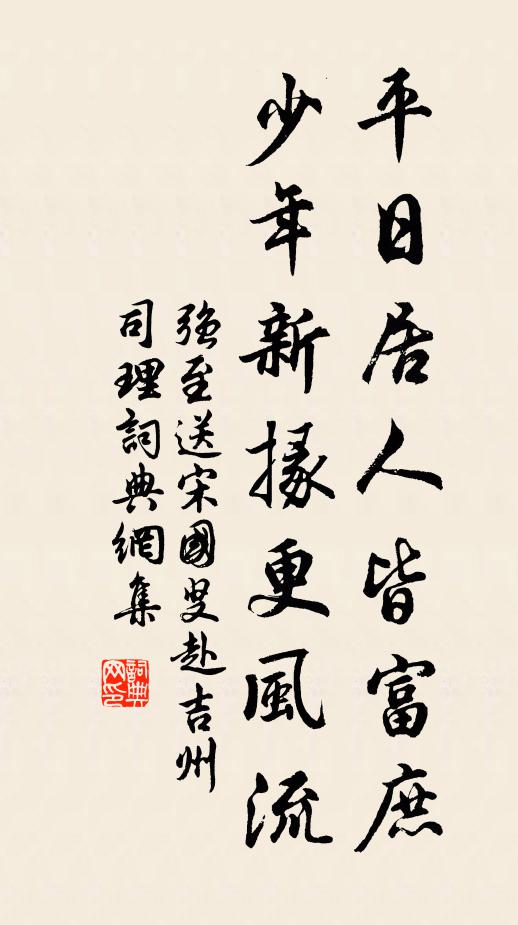 平日居人皆富庶
少年新掾更風流
強至送宋國叟赴吉州
司理詞典網集
詞典
网印